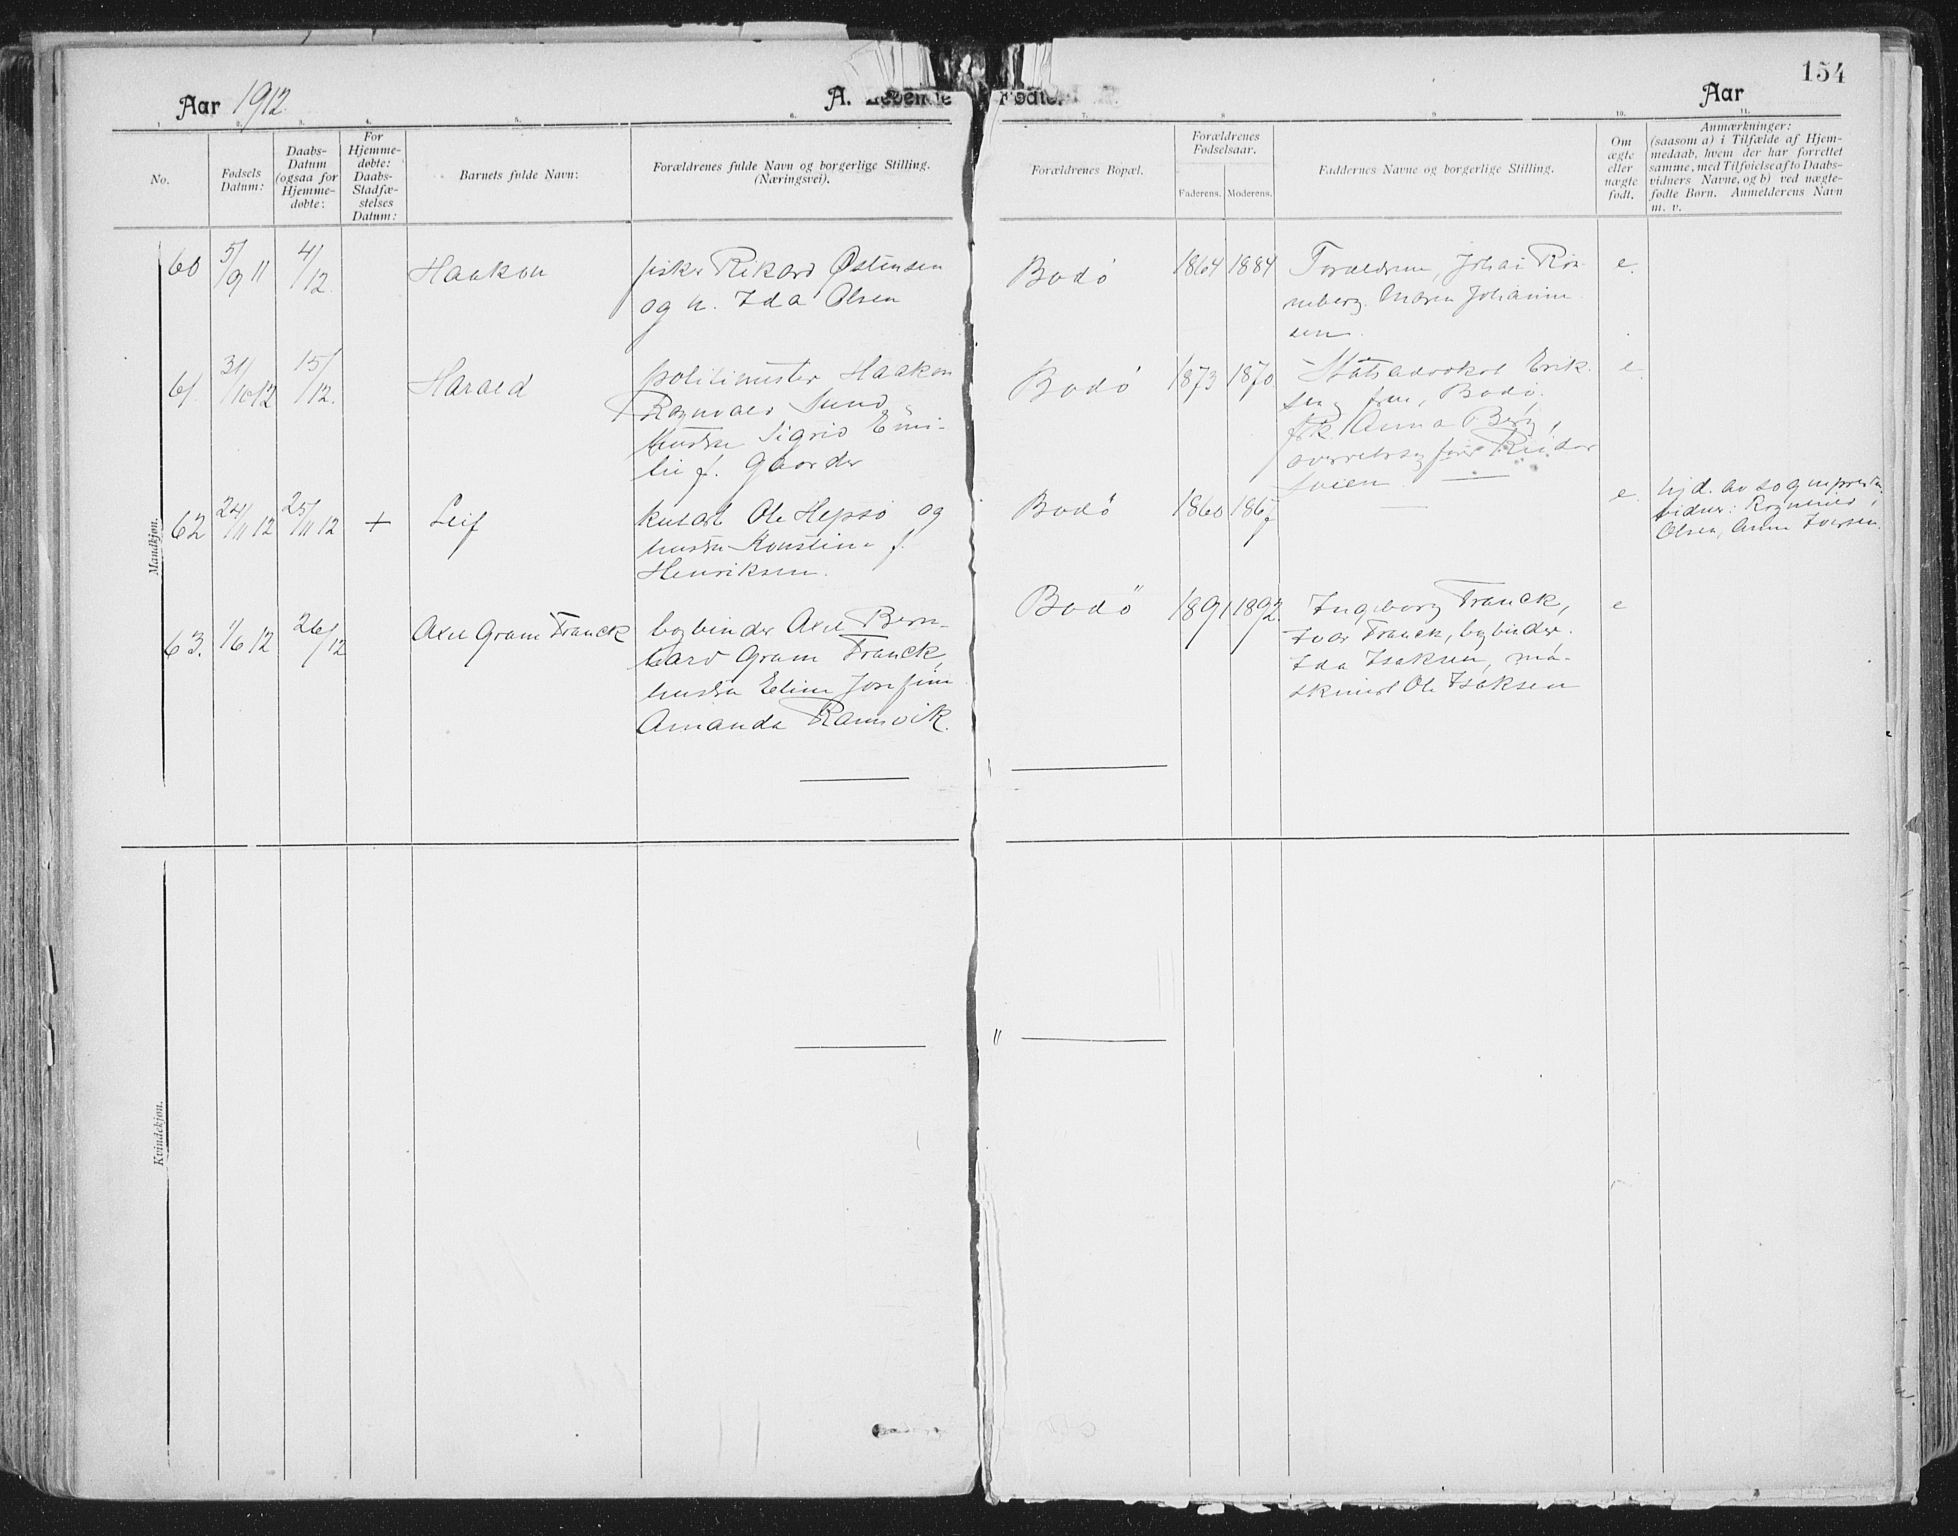 154
Aar 1912
A. Levende Fødte.
Aar
1. 2. 3. 4. 5. 6. 7. 8 9. 10. 11.
No.
Fødsels
Datum:
Daabs-
Datum
(ogsaa for
Hjemme-
døbte:
For
Hjemme-
døbte:
Daabs-
Stadfæ-
stelses
Datum:
Barnets fulde Navn:
Forældrenes fulde Navn og borgerlige Stilling.
(Næringsvei).
Forældrenes Bopæl.
Forældrenes
Fødselsaar.
Faderens. Moderens.
Faddernes Navne og borgerlige Stilling.
Om
ægte
eller
nægte
født.
Anmærkninger:
(saasom a) i Tilfælde af Hjem-
medaab, hvem der har forrettet
samme, med Tilføielse af to Daabs-
vidners Navne, og b) ved nægte-
fødte Børn. Anmelderens Navn
m. v.
Mandkjøn.
60
5/9 11
4/12.
Haakon
fisker Rikard Østensen
og h. Ida Olsen
Bodø
1864 1884
Forældrene, Johan Røn-
neberg. Maren Johanne-
sen.
e.
61.
31/10 12
15/12.
Harald
politimester Haakon
Ragnvald Sund
hustru Sigrid Emi-
lie f. Gaarder
Bodø
1873 1870
Statsadvokat Erik-
sen, frue, Bodø.
frk. Anna Berg,
overretssagfører Reidar
Sveen.
e.
62
24/11 12
25/11 12
+
Leif
Ole Hepsø og
hustru Konstine f.
Henriksen.
Bodø
1860 1867
e.
hjd. av sogneprest.
vidner: Ragnhild
Olsen, Anna Iversen.
63.
1/6 12
26/12
Axel Gram Franck
bogbinder Axel Bern-
hard Gram Franck,
hustru Eline Josefine
Amanda Ramsvik.
Bodø
1891 1892.
Ingeborg Franck,
Ivar Franck, bogbinder.
Ida Isaksen, ma-
skinist Ole Isaksen
e
Kvindekjøn.